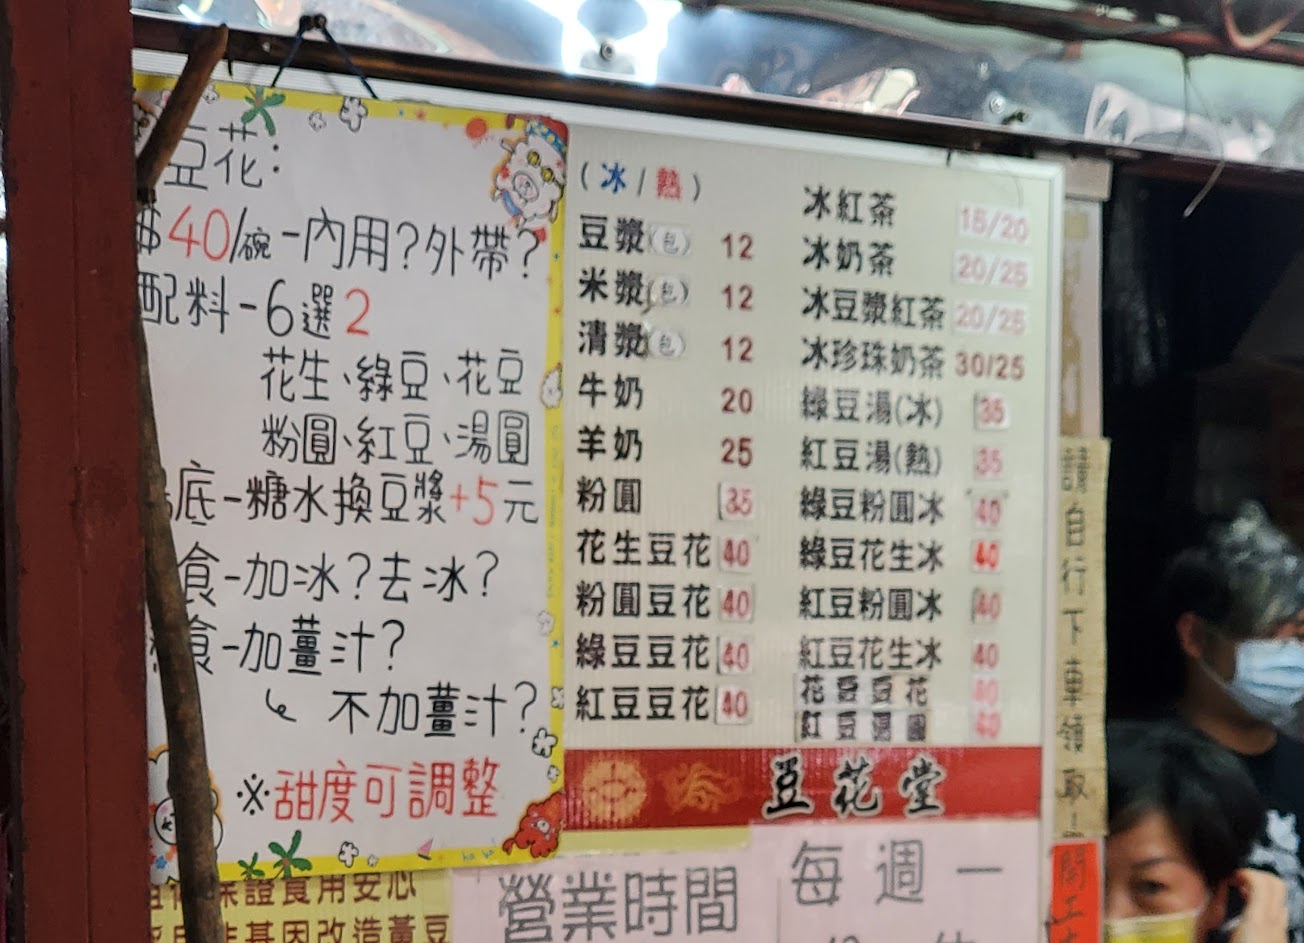 豆花:
$40/碗-內用?外帶?
配料-6選2
花生、綠豆、花豆
粉圓、紅豆、湯圓
底-糖水換豆漿+5元
食-加冰?去冰?
食-加薑汁?
不加薑汁?
※甜度可調整
(冰/熱)
豆漿(包) 12
米漿(包) 12
清漿(包) 12
牛奶 20
羊奶 25
粉圓 35
花生豆花 40
粉圓豆花 40
綠豆豆花 40
紅豆豆花 40
冰紅茶 15/20
冰奶茶 20/25
冰豆漿紅茶 20/25
冰珍珠奶茶 30/25
綠豆湯(冰) 35
紅豆湯(熱) 35
綠豆粉圓冰 40
綠豆花生冰 40
紅豆粉圓冰 40
紅豆花生冰 40
花豆豆花 40
紅豆湯圓 40
豆花堂
保證食用安心
非基因改造黃豆
營業時間
每週一
請自行下車領取